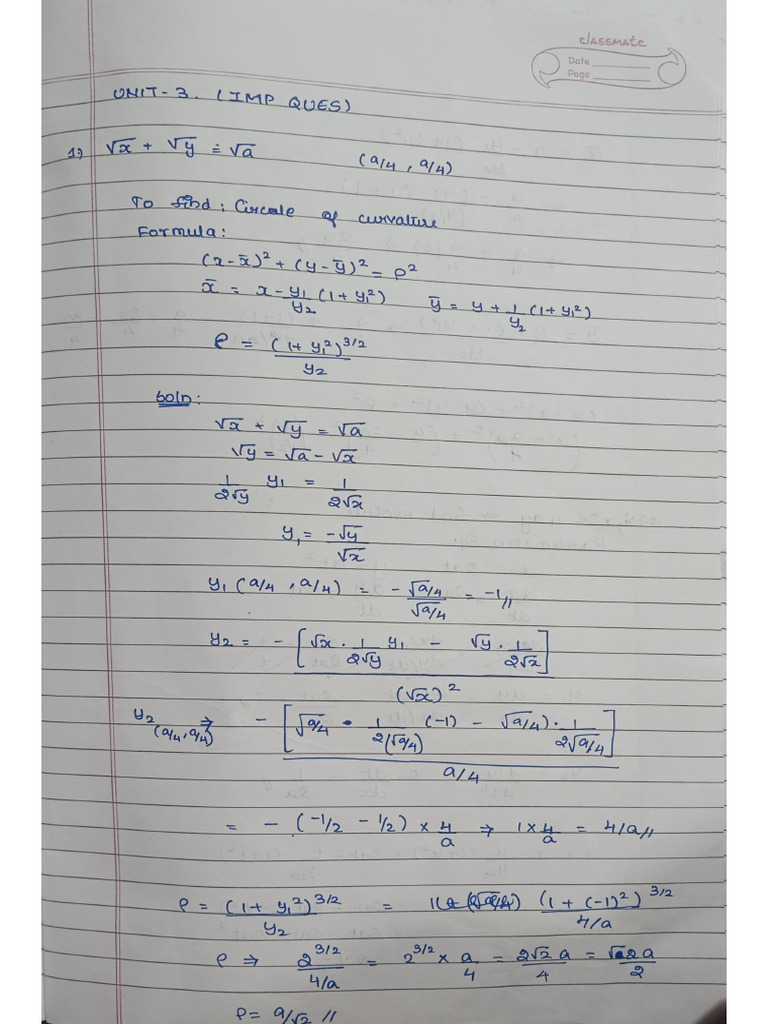 classmate
Date
Page
UNIT-3. (IMP QUES)
1) √x + √y = √a (a/4, a/4)
To find: Circle of curvature
Formula:
(x-x̄)² + (y-ȳ)² = ρ²
x̄ = x - y₁/y₂ (1+y₁²) ȳ = y + 1/y₂ (1+y₁²)
ρ = (1+y₁²)^3/2 / y₂
Soln:
√x + √y = √a
√y = √a - √x
1/2√y y₁ = 1/2√x
y₁ = -√y/√x
y₁ (a/4, a/4) = - √a/4 / √a/4 = -1//
y₂ = - [√x · 1/2√y y₁ - √y · 1/2√x] / (√x)²
y₂ (a/4, a/4) ⇒ - [√a/4 · 1/2(√a/4) (-1) - √a/4) · 1/2√a/4] / a/4
= - (-1/2 - 1/2) × 4/a ⇒ 1 × 4/a = 4/a//
ρ = (1+y₁²)^3/2 / y₂ = (1 + (-1)²)^3/2 / 4/a
ρ ⇒ 2^3/2 / 4/a = 2^3/2 × a/4 = 2√2 a/4 = √2a/2
ρ = a/√2 //